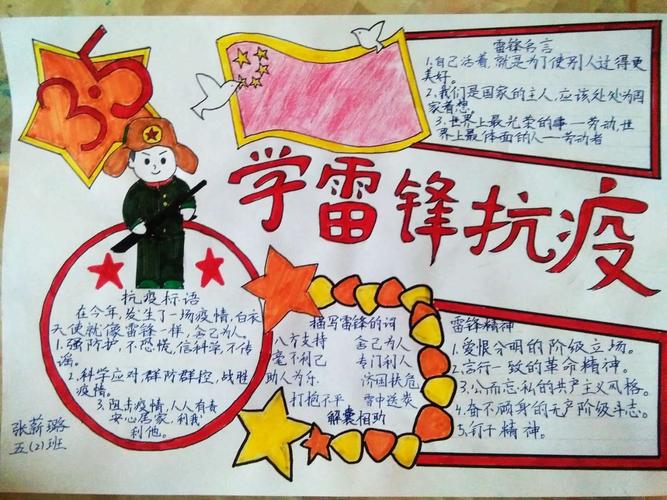 3.5
雷锋名言
1.自己活着,就是为了使别人过得更
美好。
2.我们是国家的主人,应该处处为国
家着想。
3.世界上最光荣的事—劳动,世
界上最体面的人—劳动者
学雷锋抗疫
抗疫标语
在今年,发生了一场疫情,白衣
天使就像雷锋一样,舍己为人
1.强防护,不恐慌,信科学,不传
谣。
2.科学应对群防群控,战胜
疫情。
3.阻击疫情,人人有责
安心居家,利我
利他。
描写雷锋的词
八方支持 舍己为人
毫不利己 专门利人
助人为乐 济国扶危
打抱不平 雪中送炭
解囊相助
雷锋精神
1.爱恨分明的阶级立场。
2.言行一致的革命精神。
3.公而忘私的共产主义风格。
4.奋不顾身的无产阶级斗志。
5.钉子精神。
张薪璐
五(2)班